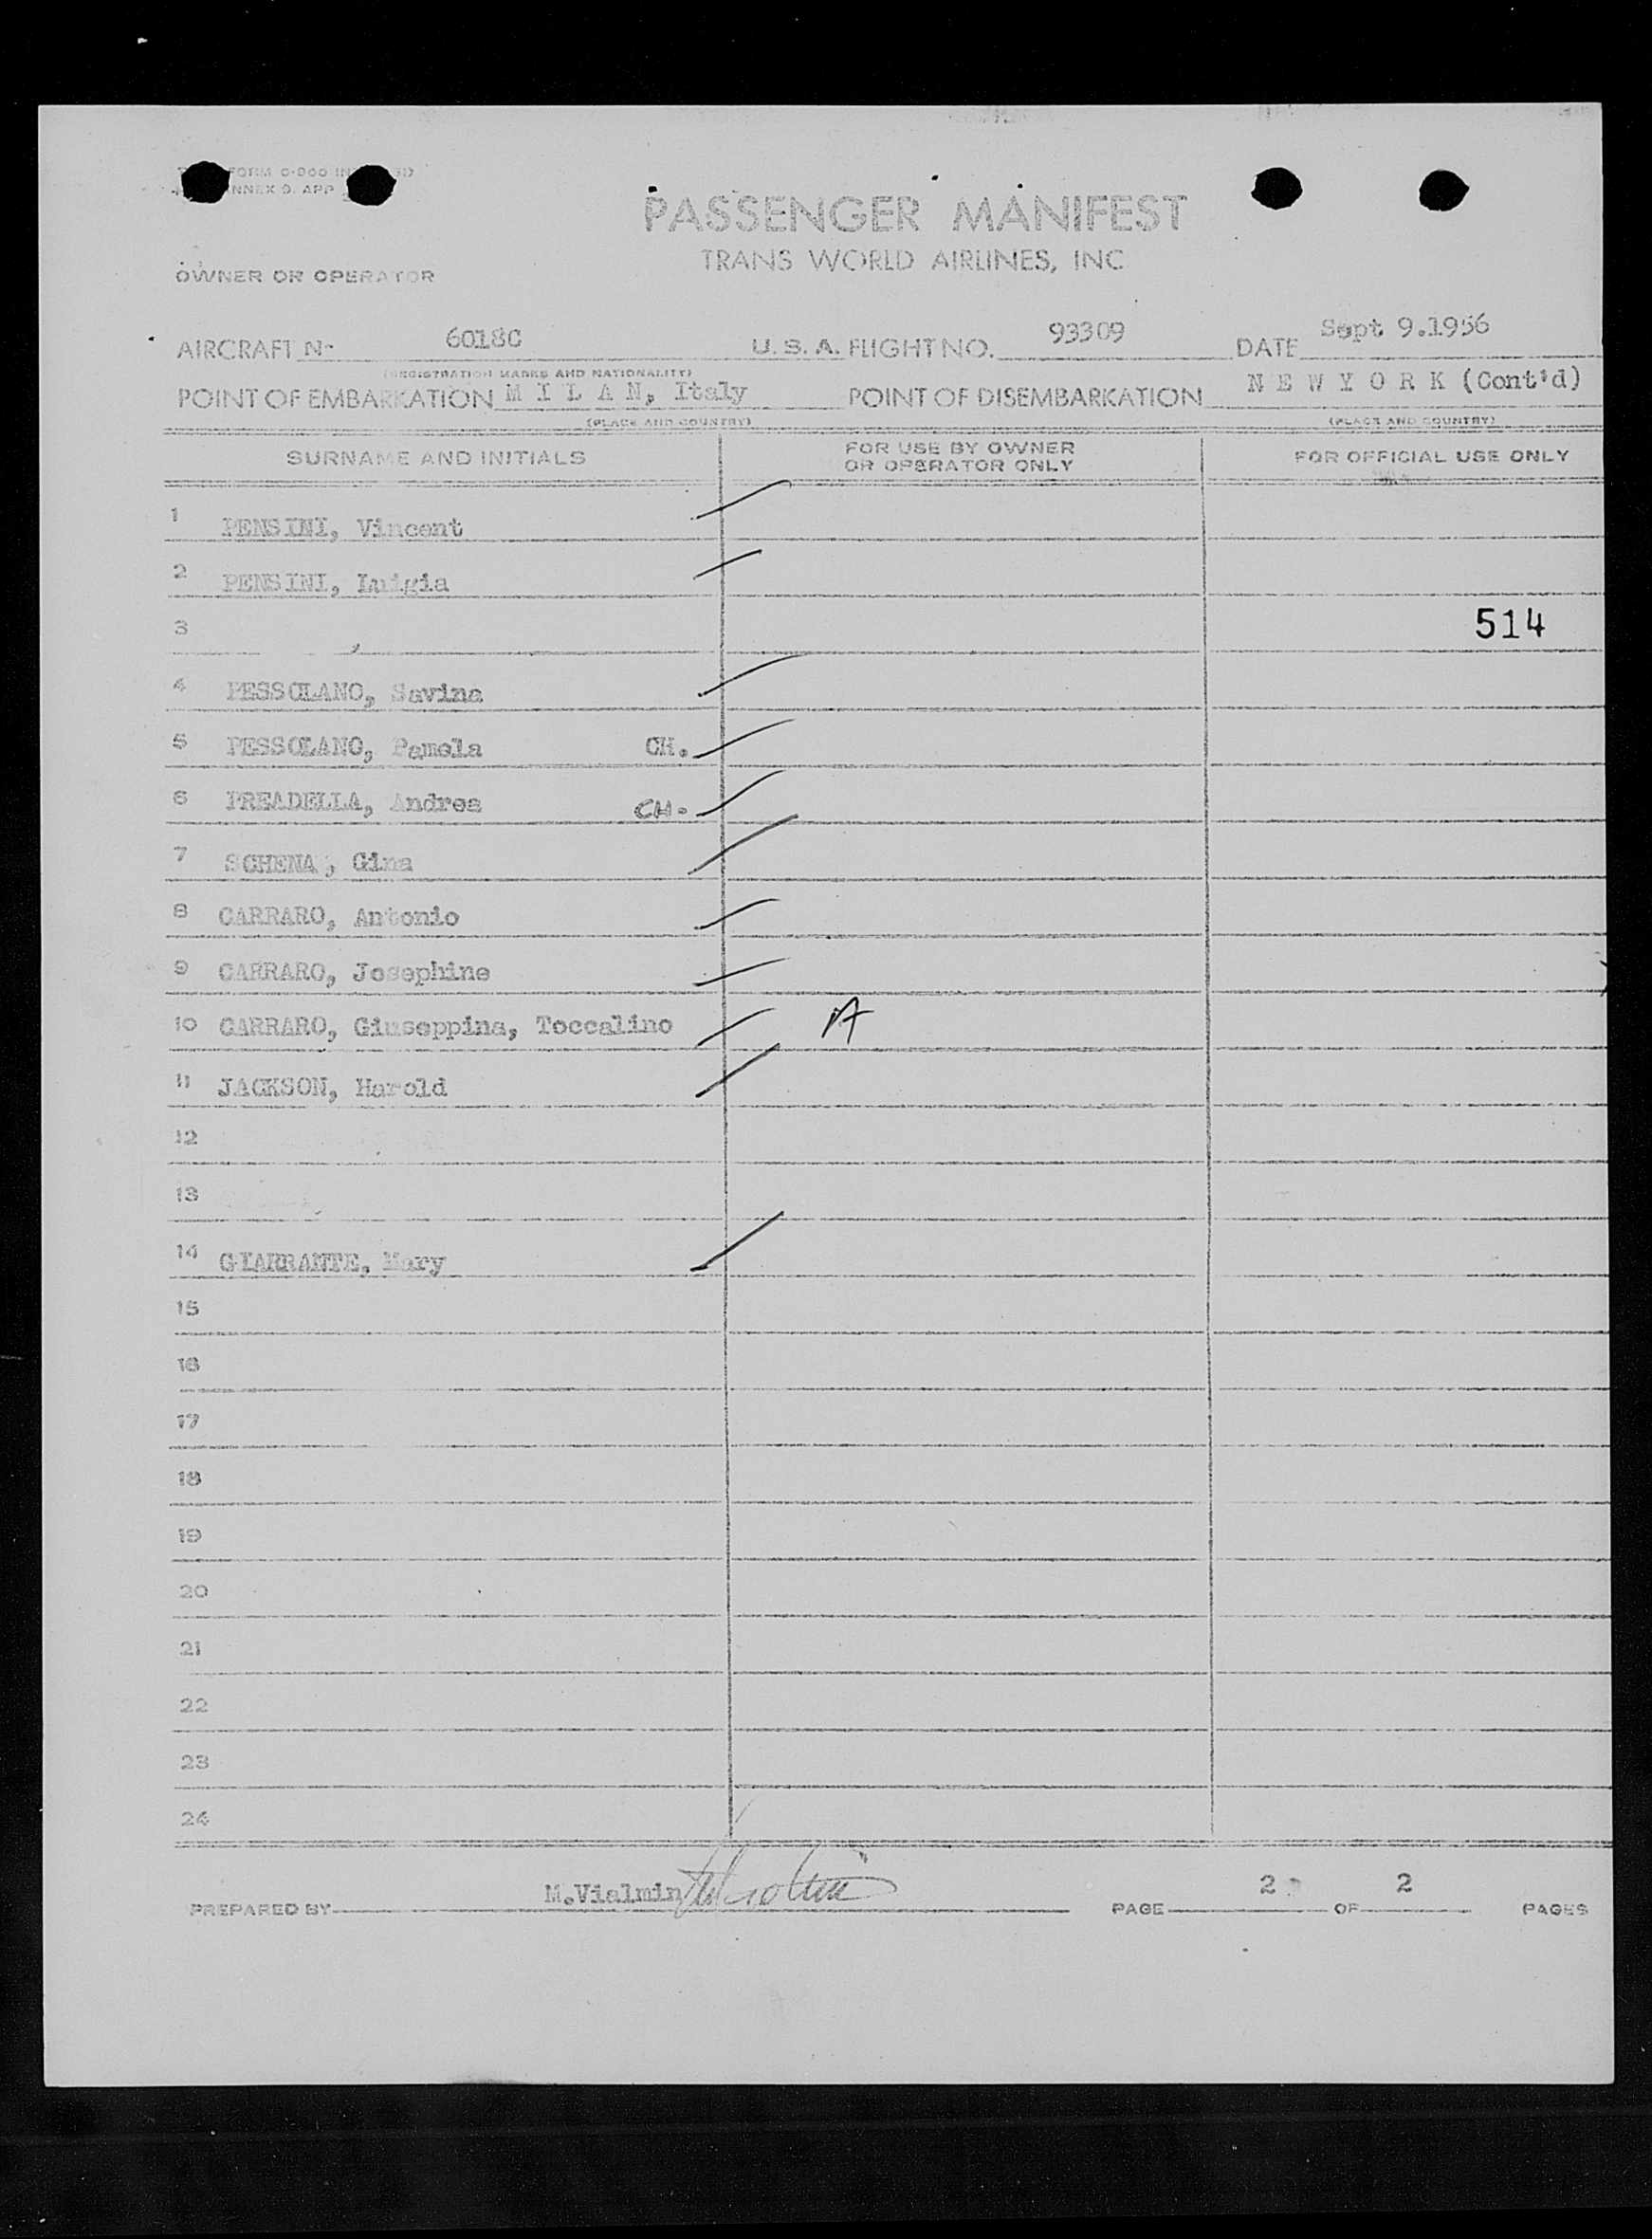 FORM
ANNEX 9. APP
PASSENGER MANIFEST
TRANS WORLD AIRLINES, INC
OWNER OR OPERATOR
AIRCRAFT No 6018C U. S. A. FLIGHT NO. 93309 DATE Sept 9.1956
(REGISTRATION MARKS AND NATIONALITY)
POINT OF EMBARKATION M I L A N, Italy POINT OF DISEMBARKATION N E W Y O R K (Cont'd)
(PLACE AND COUNTRY) (PLACE AND COUNTRY)
SURNAME AND INITIALS FOR USE BY OWNER OR OPERATOR ONLY FOR OFFICIAL USE ONLY
1 PENSINI, Vincent
2 PENSINI, Luigia
3 , 514
4 PESSOLANO, Savina
5 PESSOLANO, Pamela CH.
6 PREADELLA, Andrea CH.
7 SCHENA , Gina
8 CARRARO, Antonio
9 CARRARO, Josephine
10 CARRARO, Giuseppina, Toccalino A
11 JACKSON, Harold
12
13
14 GIARRANTE, Mary
15
16
17
18
19
20
21
22
23
24
PREPARED BY M.Vialmin PAGE 2 OF 2 PAGES